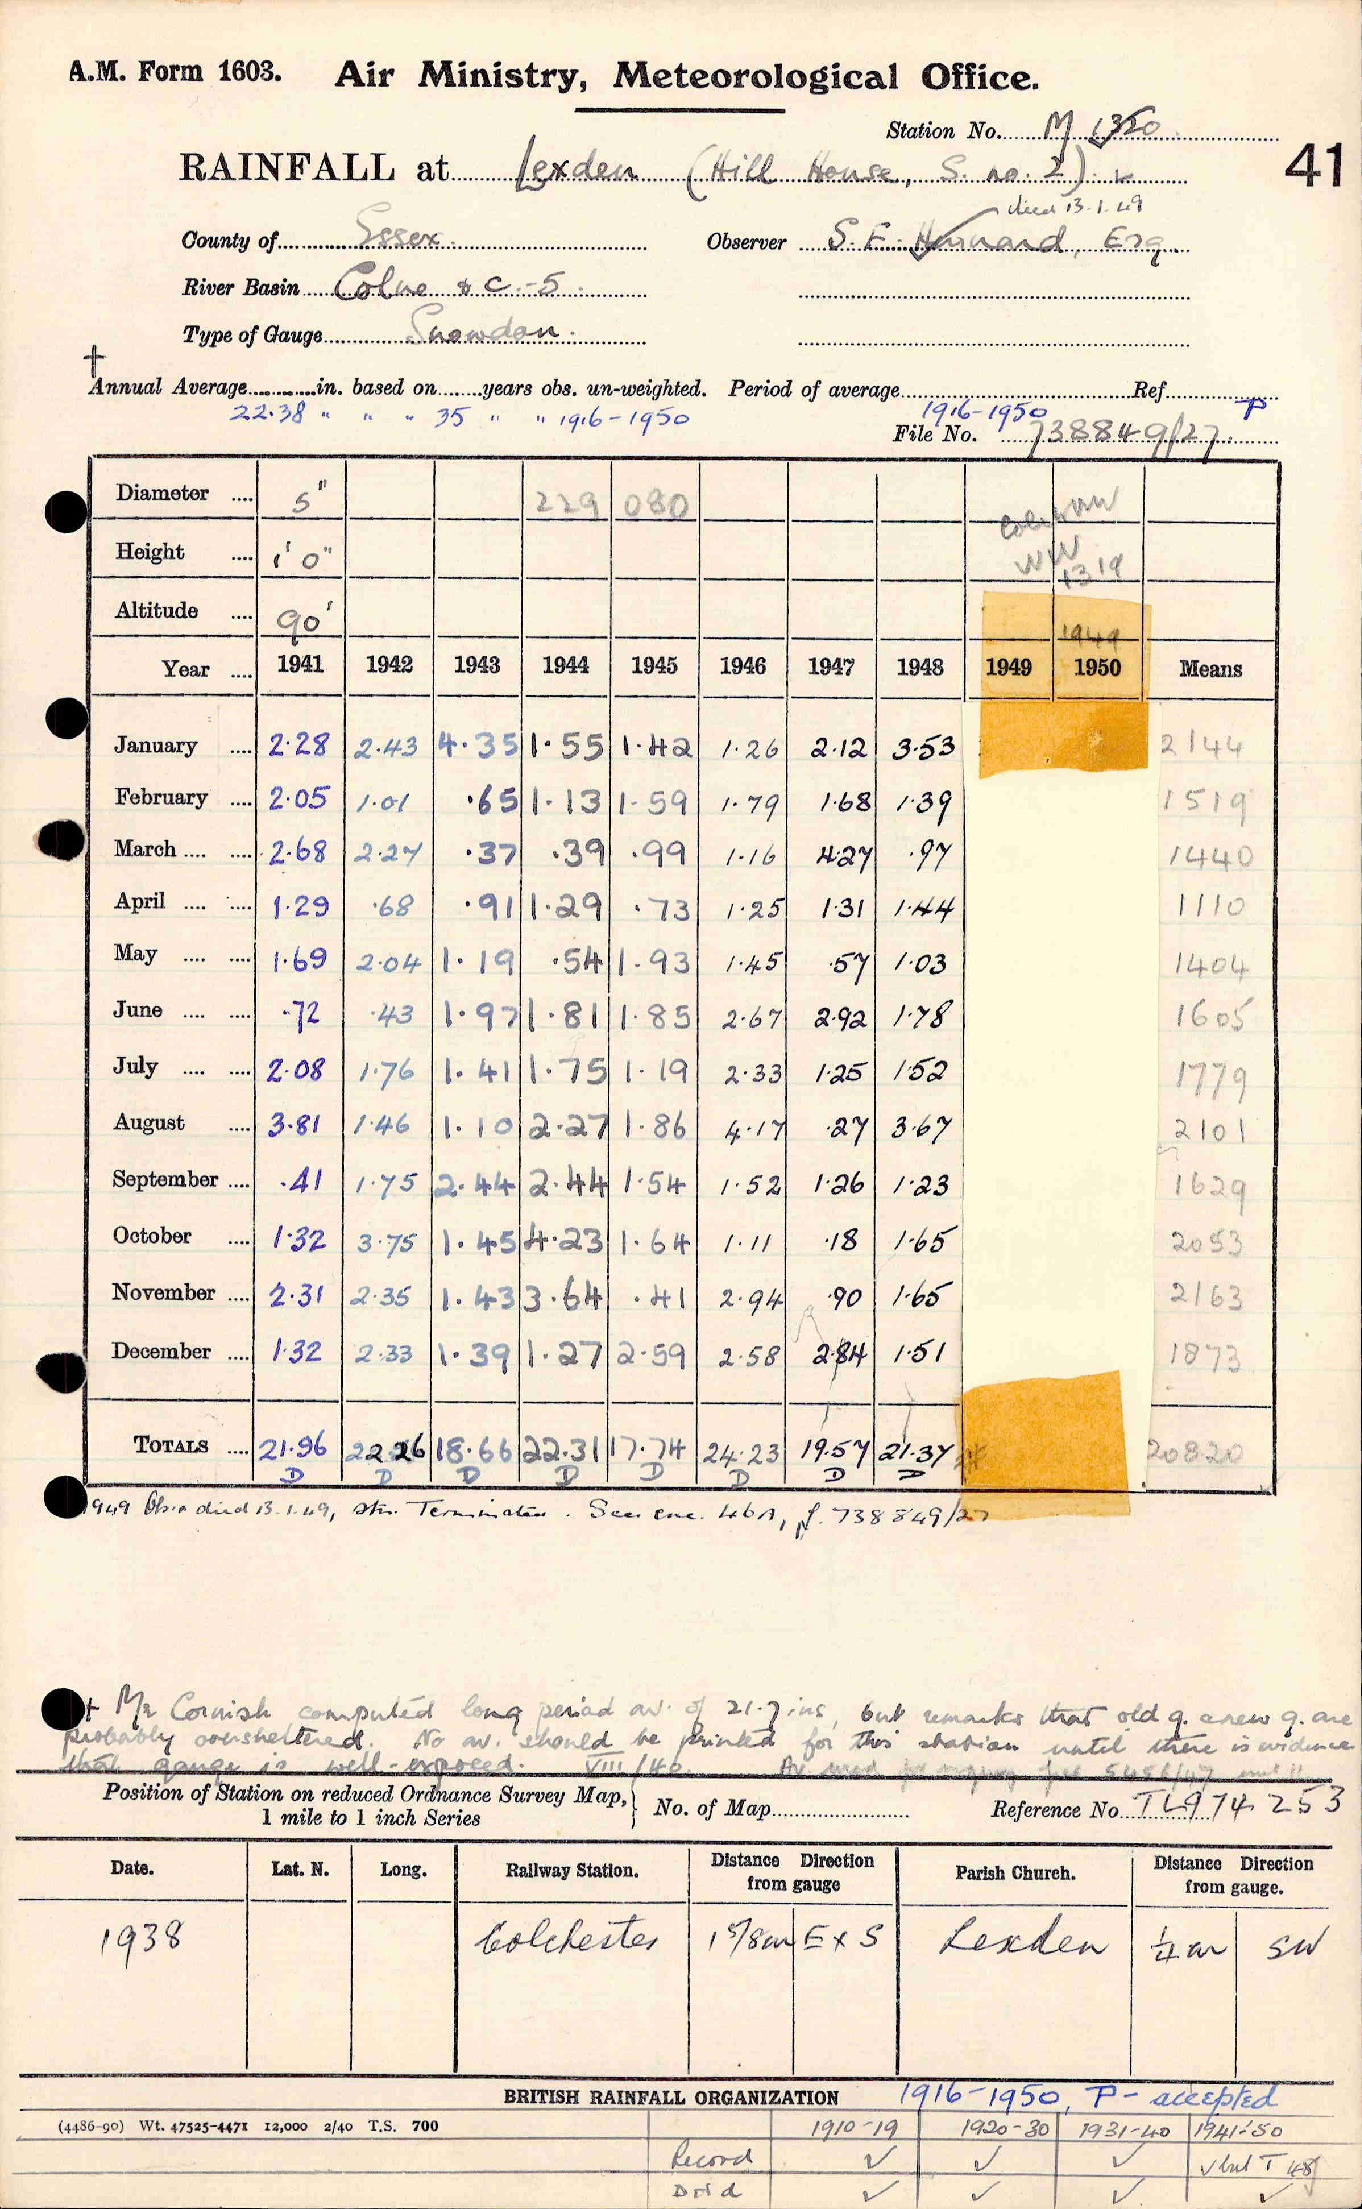 A.M. Form 1603. Air Ministry, Meteorological Office.
Station No. M 1320
41
RAINFALL at Lexden (Hill House, S. no. 2)
died 13.1.49
County of Essex. Observer S. F. Hurnard, Esq.
River Basin Colne &c.-5.
Type of Gauge Snowdon.
†
Annual Average in. based on years obs. un-weighted. Period of average Ref.
22.38 " " " 35 " " 1916-1950 1916-1950 P
File No. 738849/27
Diameter 5" 229 080
Height 1' 0" WW 1319
Altitude 90' 1949
Year 1941 1942 1943 1944 1945 1946 1947 1948 1949 1950 Means
January 2.28 2.43 4.35 1.55 1.42 1.26 2.12 3.53 2144
February 2.05 1.01 .65 1.13 1.59 1.79 1.68 1.39 1519
March 2.68 2.27 .37 .39 .99 1.16 4.27 .97 1440
April 1.29 .68 .91 1.29 .73 1.25 1.31 1.44 1110
May 1.69 2.04 1.19 .54 1.93 1.45 .57 1.03 1404
June .72 .43 1.97 1.81 1.85 2.67 2.92 1.78 1605
July 2.08 1.76 1.41 1.75 1.19 2.33 1.25 1.52 1779
August 3.81 1.46 1.10 2.27 1.86 4.17 .27 3.67 2101
September .41 1.75 2.44 2.44 1.54 1.52 1.26 1.23 1629
October 1.32 3.75 1.45 4.23 1.64 1.11 .18 1.65 2053
November 2.31 2.35 1.43 3.64 .41 2.94 .90 1.65 2163
December 1.32 2.33 1.39 1.27 2.59 2.58 2.84 1.51 1873
TOTALS 21.96 22.26 18.66 22.31 17.74 24.23 19.57 21.37 20820
D D D D D D D D
1949 Obsr died 13.1.49, stn. Terminated. See enc. 46A, f. 738849/27
† Mr Cornish computed long period av. of 21.7 ins, but remarks that old g. & new g. are
probably oversheltered. No av. should be printed for this station until there is evidence
that gauge is well-exposed. VIII/46
Position of Station on reduced Ordnance Survey Map, 1 mile to 1 inch Series No. of Map Reference No. TL 974 253
Date. Lat. N. Long. Railway Station. Distance Direction from gauge Parish Church. Distance Direction from gauge.
1938 Colchester 1 5/8 m E x S Lexden 1/4 m SW
BRITISH RAINFALL ORGANIZATION 1916-1950, P- accepted
(4486-90) Wt. 47525-4471 12,000 2/40 T.S. 700 1910-19 1920-30 1931-40 1941-50
Record ✓ ✓ ✓ ✓ but T 48
Dr'd ✓ ✓ ✓ ✓